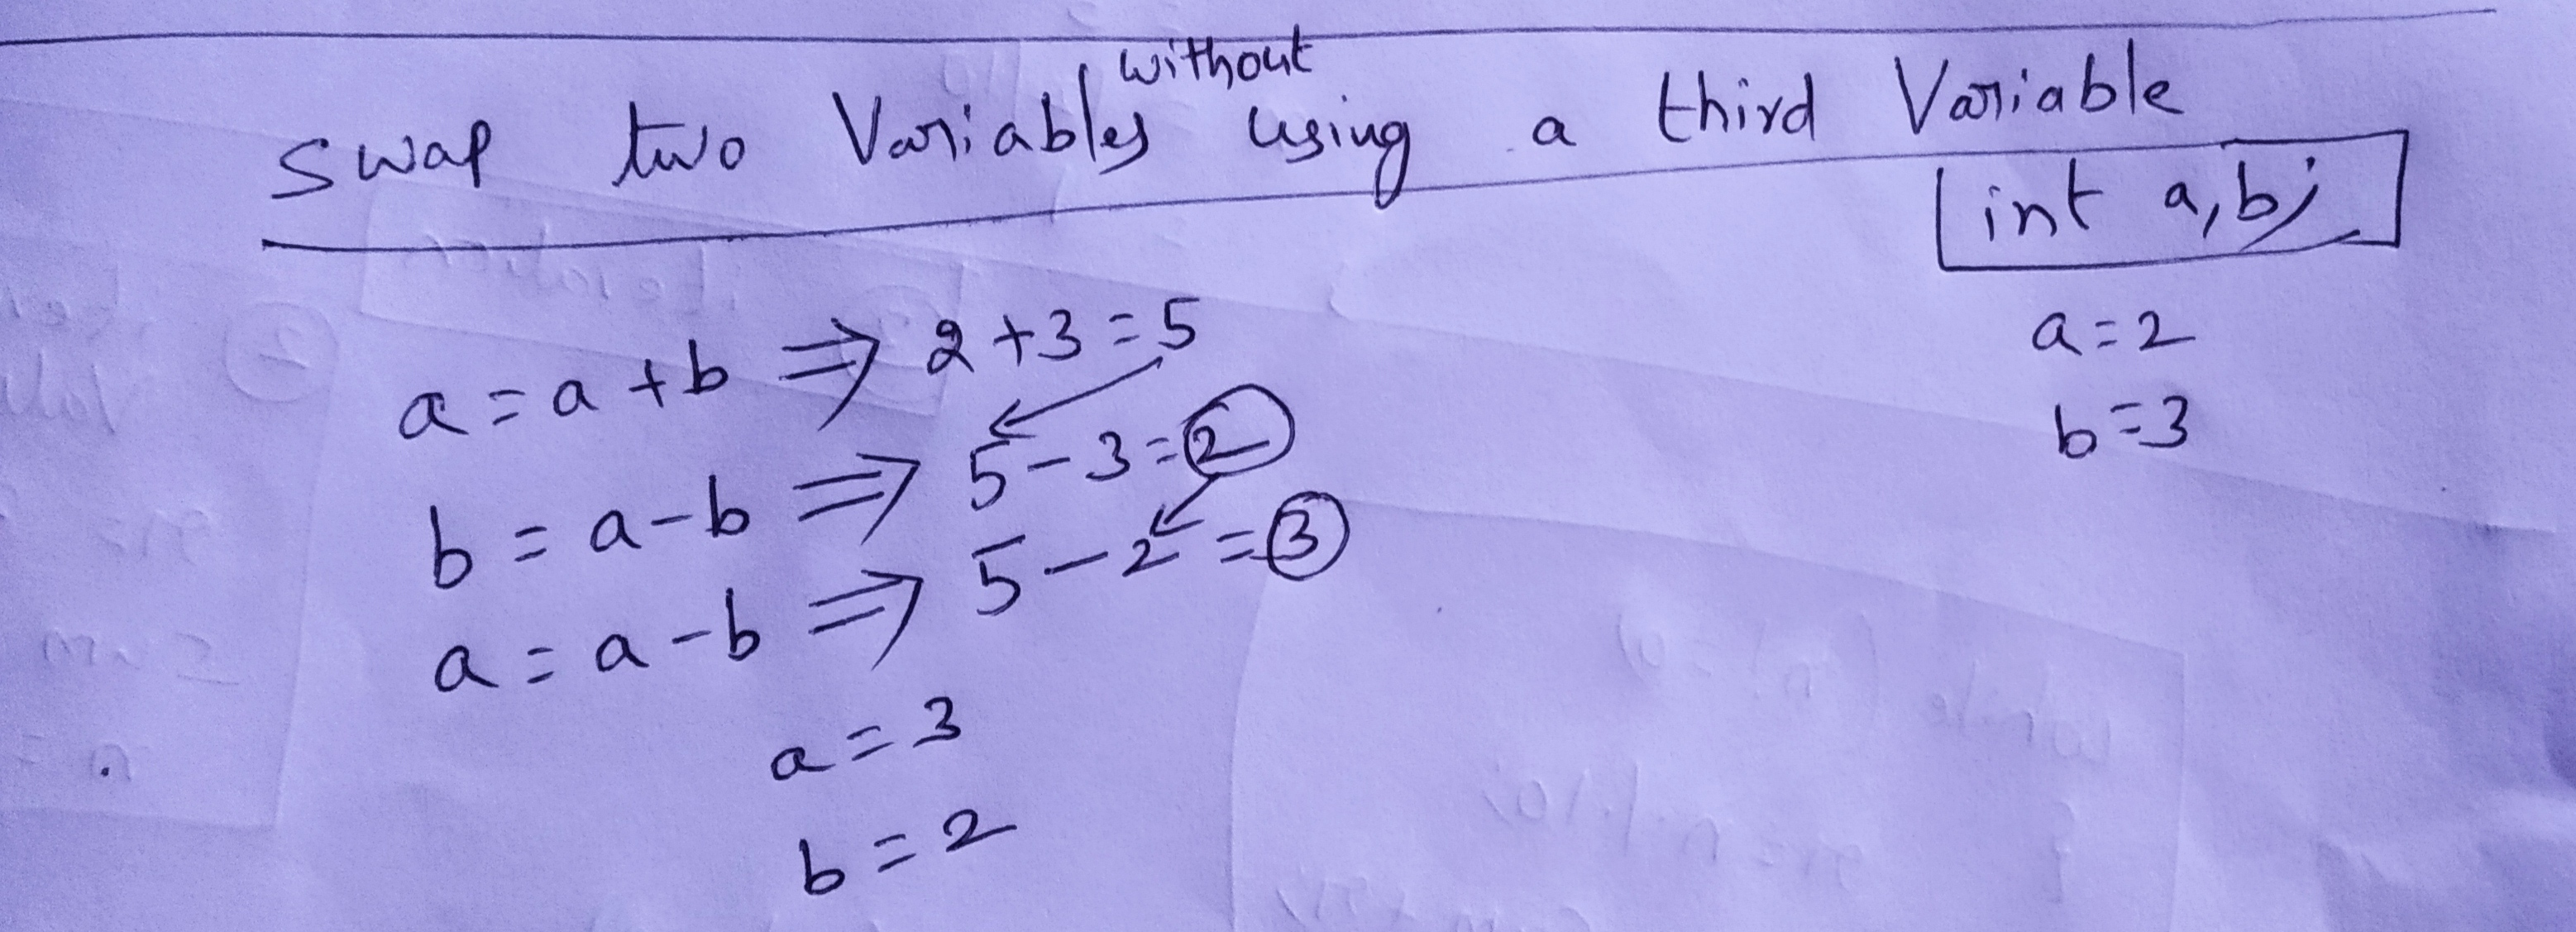 swap two Variables without using a third Variable
int a,b;
a=2
b=3
a=a+b ⇒ 2+3=5
b=a-b ⇒ 5-3=2
a=a-b ⇒ 5-2=3
a=3
b=2